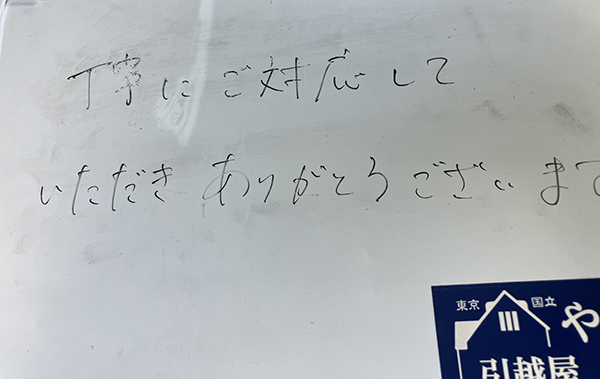 丁寧にご対応して
いただき ありがとうございます
東京 国立
や
引越屋